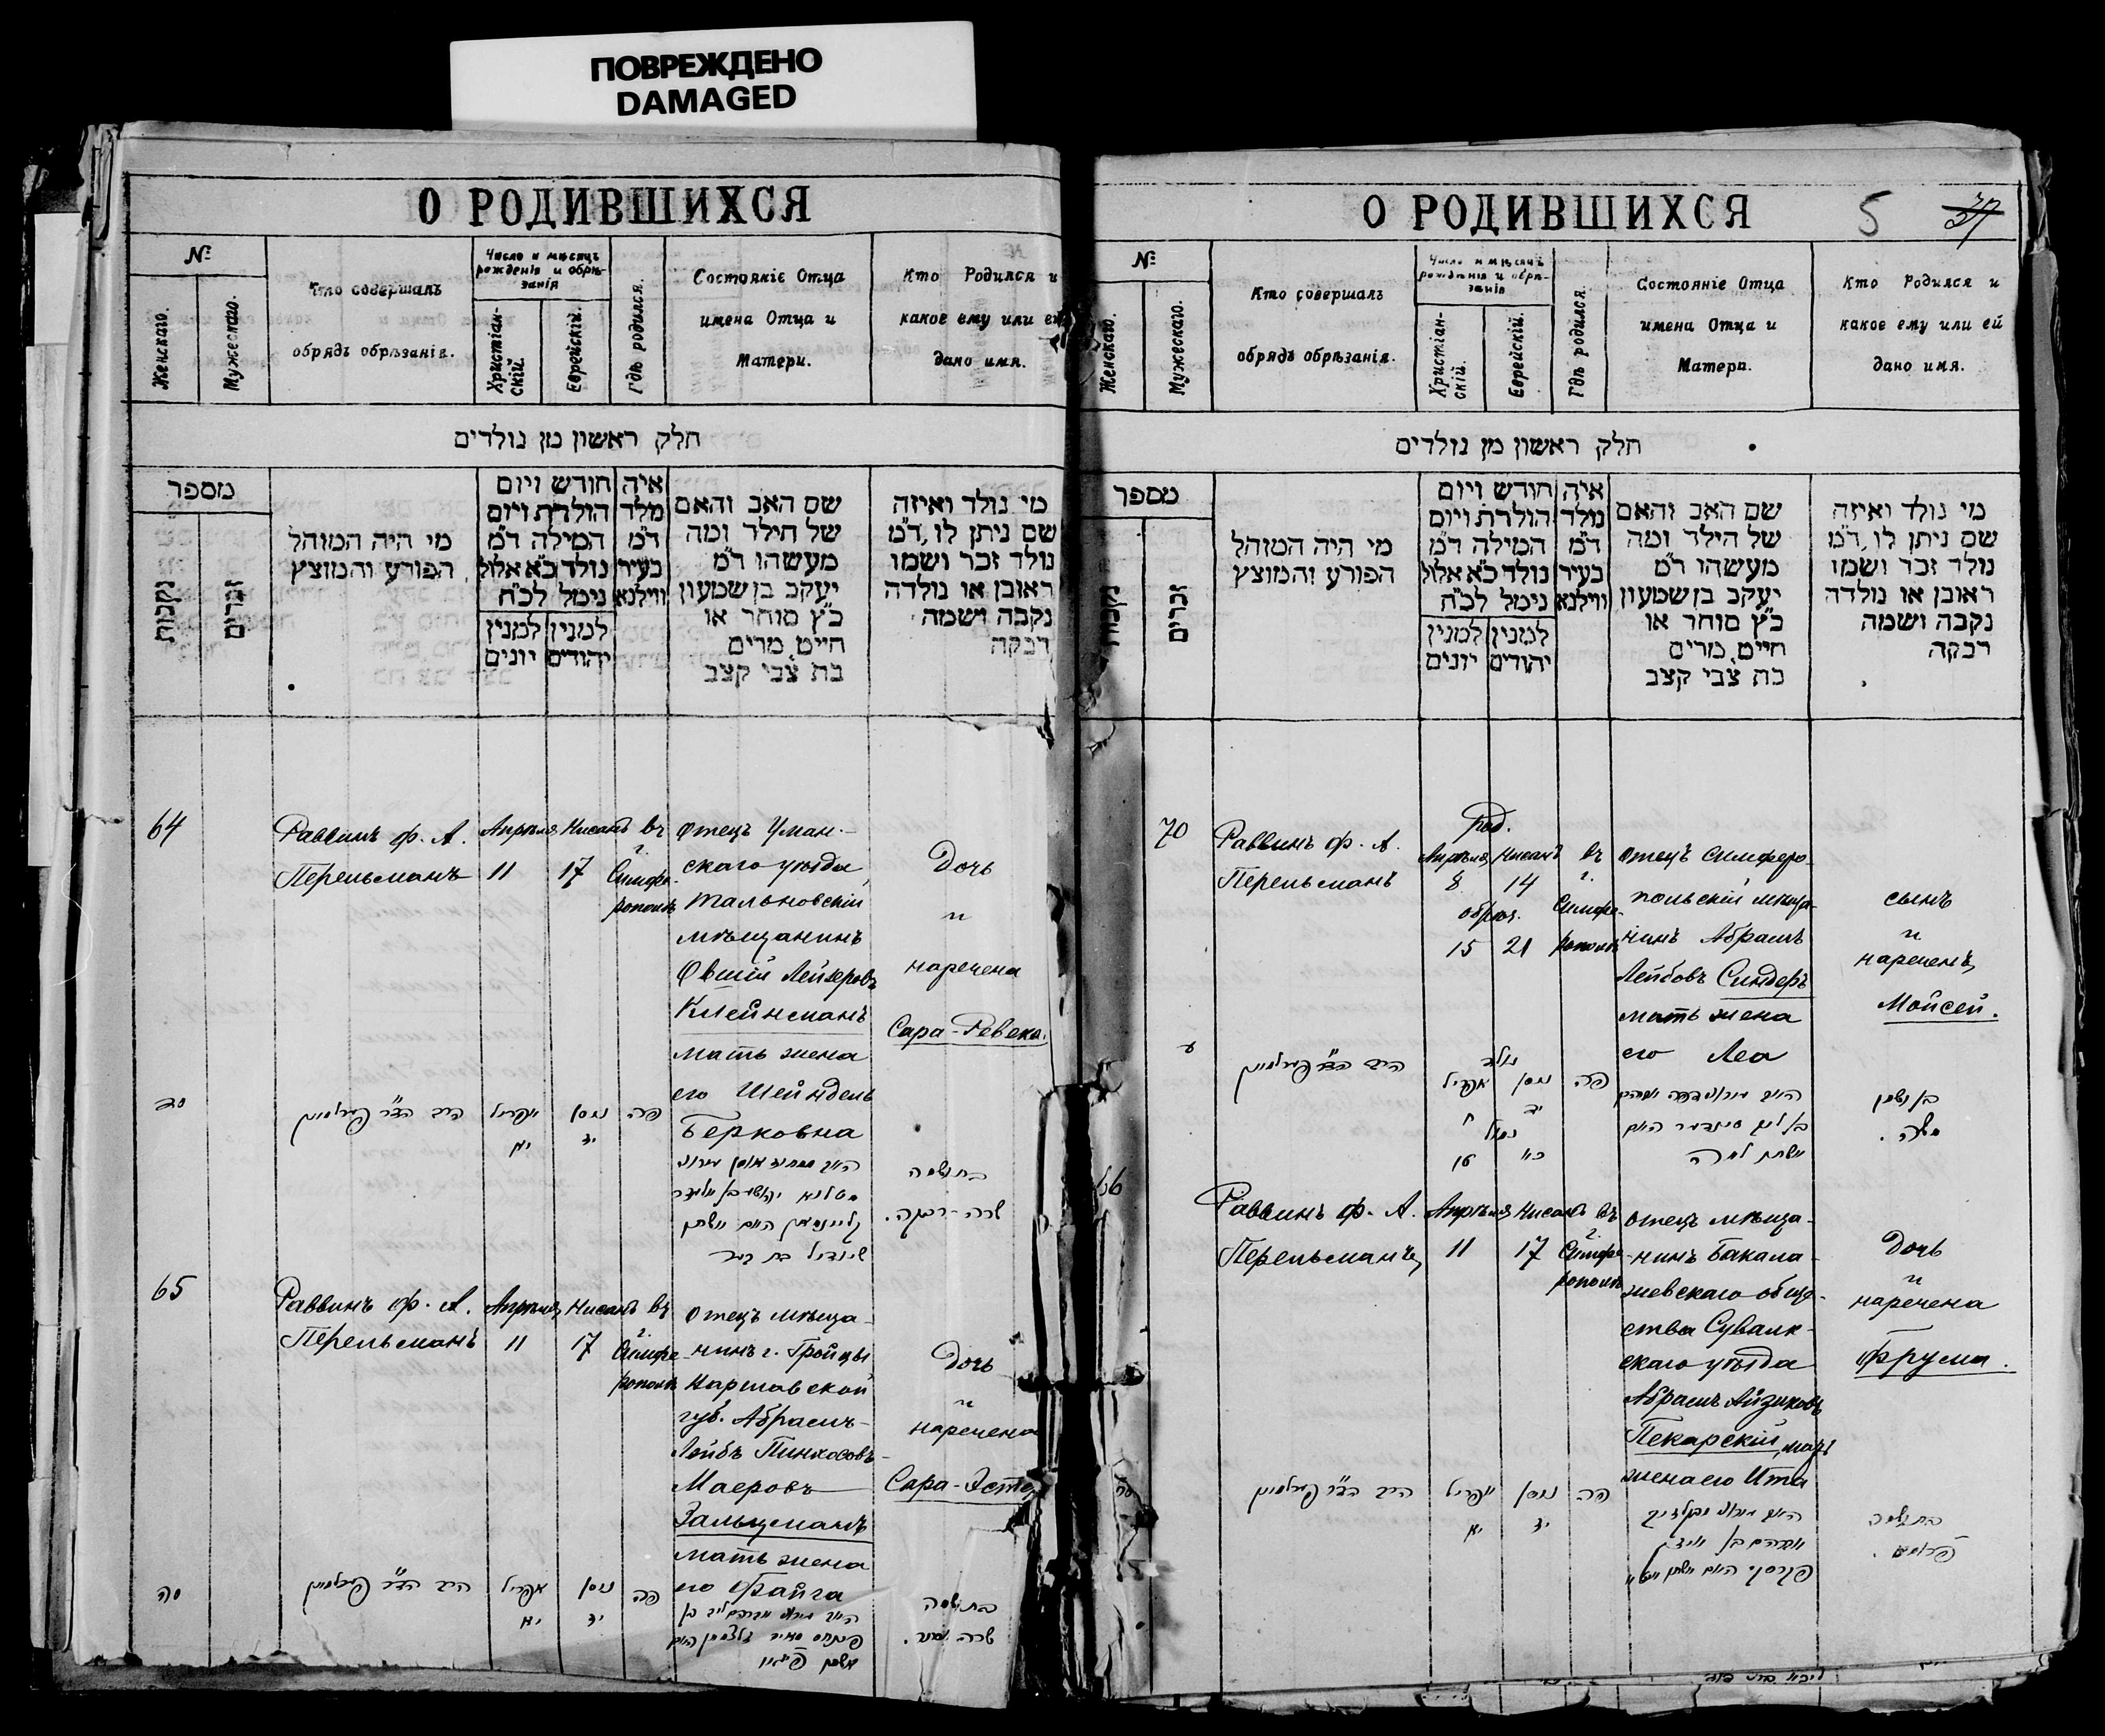 ПОВРЕЖДЕНО
DAMAGED
О РОДИВШИХСЯ
№
Женскаго.
Мужескаго.
Кто совершалъ
обрядъ обрѣзанія.
Число и мѣсяцъ
рожденія и обрѣ-
занія
Христіан-
скій.
Еврейскій.
Гдѣ родился.
Состояніе Отца
имена Отца и
Матери.
Кто Родился и
какое ему или ей
дано имя.
חלק ראשון מן נולדים
מספר
נקבות
זכרים
מי היה המוהל
הפורע והמוצץ
חודש ויום
הולדת ויום
המילה ד"מ
נולד כ"א אלול
נימל לכ"ח
למנין למנין
יהודים יונים
איה
נולד
ד"מ
בעיר
ווילנא
שם האב והאם
של הילד ומה
מעשהו ד"מ
יעקב בן שמעון
כ"ץ סוחר או
חייט, מרים
בת צבי קצב
מי נולד ואיזה
שם ניתן לו, ד"מ
נולד זכר ושמו
ראובן או נולדה
נקבה ושמה
רבקה
64
Раввинъ ф. А.
Перельманъ
Апрѣля
11
Нисанъ
17
въ
г.
Симфе-
рополѣ
отецъ Уман-
скаго уѣзда,
Тальновскій
мѣщанинъ
Овшій Лейзеровъ
Клейнманъ
мать жена
его Шейндель
Берковна
Дочь
и
наречена
Сара-Ревека.
סד
הרב הד"ר פערלמאן
אפריל
יא
ניסן
יז
פה
בת ושמה
שרה-רבקה.
65
Раввинъ ф. А.
Перельманъ
Апрѣля
11
Нисанъ
17
въ
г.
Симфе-
рополѣ
отецъ мѣща-
нинъ г. Гройцы
Варшавской
губ. Абрамъ-
Лейбъ Пинхосовъ-
Маеровъ
Зальцманъ
мать жена
его Файга
Дочь
и
наречена
Сара-Эстер
סה
הרב הד"ר פערלמאן
אפריל
יא
ניסן
יז
פה
בת ושמה
שרה אסתר.
О РОДИВШИХСЯ
5
37
№
Женскаго.
Мужескаго.
Кто совершалъ
обрядъ обрѣзанія.
Число и мѣсяцъ
рожденія и обрѣ-
занія
Христіан-
скій.
Еврейскій.
Гдѣ родился.
Состояніе Отца
имена Отца и
Матери.
Кто Родился и
какое ему или ей
дано имя.
חלק ראשון מן נולדים
מספר
נקבות
זכרים
מי היה המוהל
הפורע והמוצץ
חודש ויום
הולדת ויום
המילה ד"מ
נולד כ"א אלול
נימל לכ"ח
למנין למנין
יהודים יונים
איה
נולד
ד"מ
בעיר
ווילנא
שם האב והאם
של הילד ומה
מעשהו ד"מ
יעקב בן שמעון
כ"ץ סוחר או
חייט, מרים
בת צבי קצב
מי נולד ואיזה
שם ניתן לו, ד"מ
נולד זכר ושמו
ראובן או נולדה
נקבה ושמה
רבקה
70
Раввинъ ф. А.
Перельманъ
Род.
Апрѣля Нисанъ
8 14
обрѣз.
15 21
въ
г.
Симфе-
рополѣ
отецъ симферо-
польскій мѣща-
нинъ Абрамъ
Лейбовъ Синдеръ
мать жена
его Леа
сынъ
и
нареченъ
Мойсей.
ע
הרב הד"ר פערלמאן
נולד
אפריל
ח
ניסן
יד
נמול
טו
כא
פה
בן ושמו
משה.
66
Раввинъ ф. А.
Перельманъ
Апрѣля
11
Нисанъ
17
въ
г.
Симфе-
рополѣ
отецъ мѣща-
нинъ Бакала-
жевскаго обще-
ства Сувалк-
скаго уѣзда
Абрамъ Айзиковъ
Пекарскій, мать
жена его Ита
Дочь
и
наречена
Фрума.
סו
הרב הד"ר פערלמאן
אפריל
יא
ניסן
יז
פה
בת ושמה
פרומא.